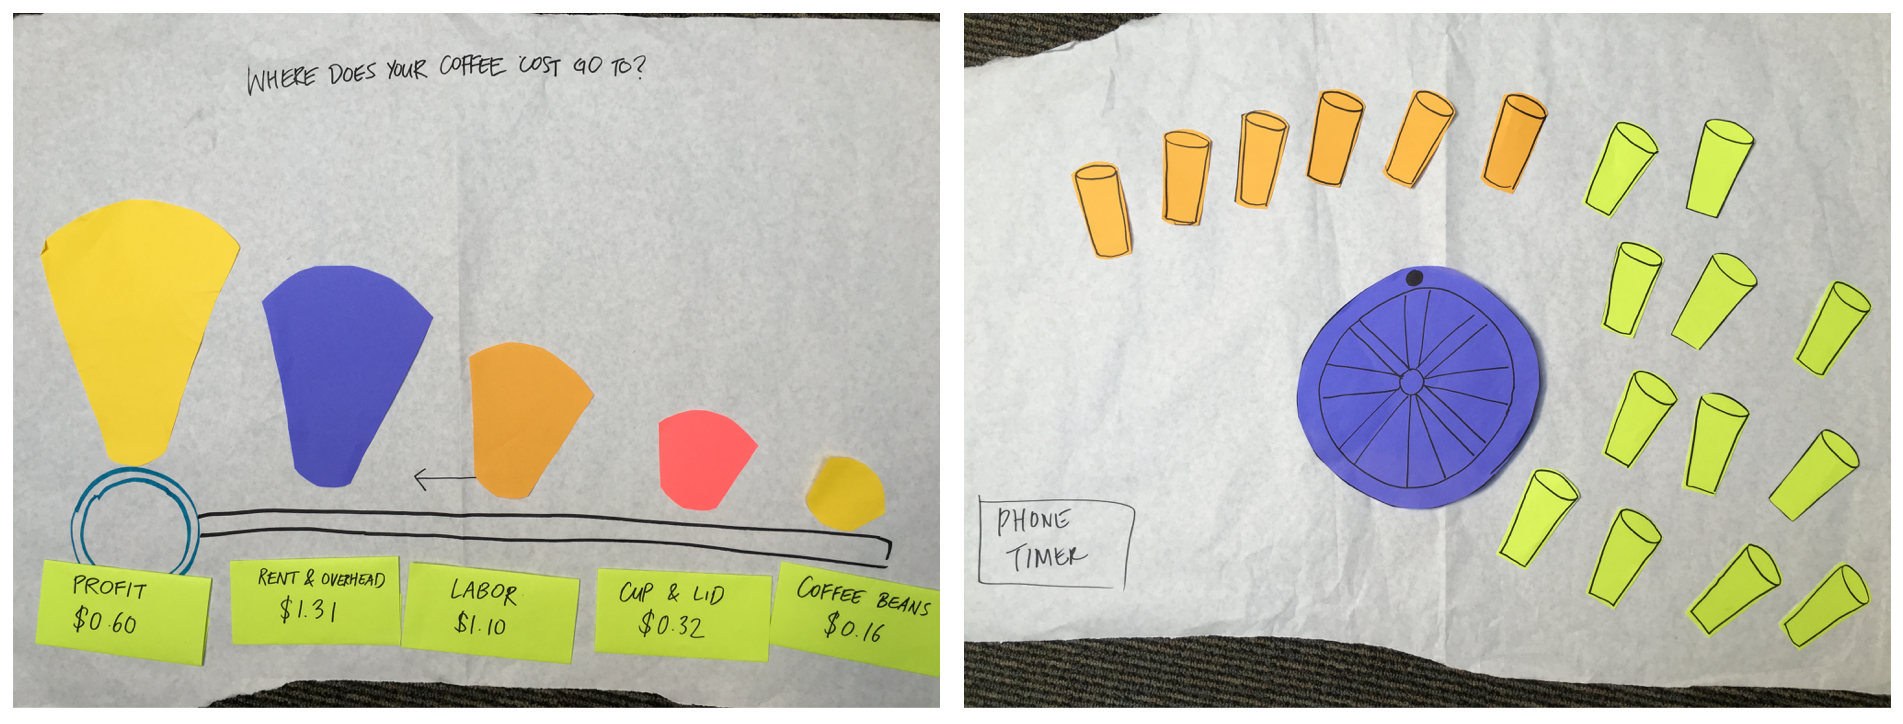 WHERE DOES YOUR COFFEE COST GO TO?
PROFIT
$0.60
RENT & OVERHEAD
$1.31
LABOR
$1.10
CUP & LID
$0.32
COFFEE BEANS
$0.16
PHONE
TIMER